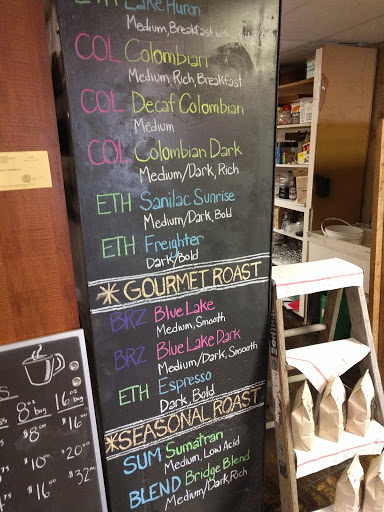 ETH Lake Huron
Medium, Breakfast with
COL Colombian
Medium, Rich, Breakfast
COL Decaf Colombian
Medium
COL Colombian Dark
Medium/Dark, Rich
ETH Sanilac Sunrise
Medium/Dark, Bold
ETH Freighter
Dark/Bold
*GOURMET ROAST
BRZ Blue Lake
Medium, Smooth
BRZ Blue Lake Dark
Medium/Dark, Smooth
ETH Espresso
Dark, Bold
*SEASONAL ROAST
SUM Sumatran
Medium, Low Acid
BLEND Bridge Blend
Medium/Dark, Rich
8oz bag 16oz bag
$8 00 $16 00
$10 00 $20 00
$16 00 $32 00